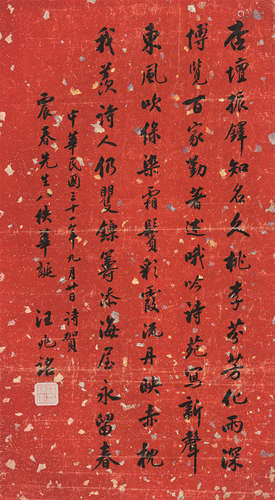 杏壇振鐸知名久桃李芬芳化雨深
博覽百家勤著述哦吟詩苑寫新聲
東風吹綠染霜鬢彩霞流丹映赤忱
我羨詩人仍矍鑠籌添海屋永留春
中華民國三十一年九月廿日詩賀
震春先生八佚華誕
汪兆銘